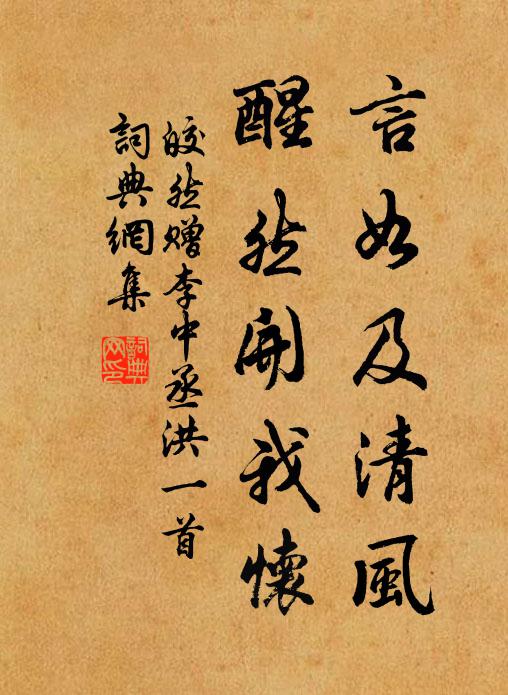 言如及清風
醒然開我懷
皎然贈李中丞洪一首
詞典網集
詞典網印